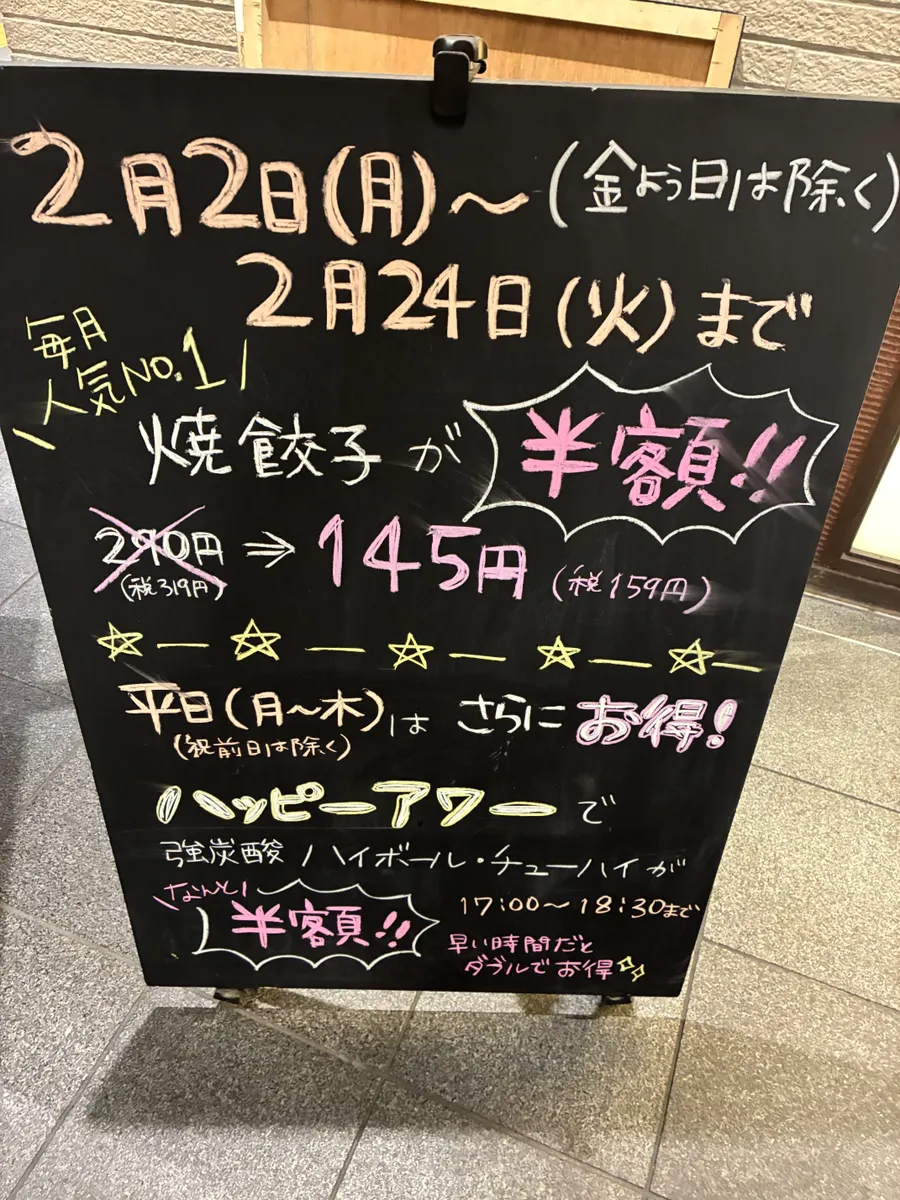 2月2日(月)～(金よう日は除く)
2月24日(火)まで
毎月
人気NO.1
焼餃子が半額!!
290円⇒145円(税159円)
(税319円)
☆―☆―☆―☆―☆―
平日(月～木)はさらにお得!
(祝前日は除く)
ハッピーアワーで
強炭酸ハイボール・チューハイが
なんと
半額!!
17:00～18:30まで
早い時間だと
ダブルでお得